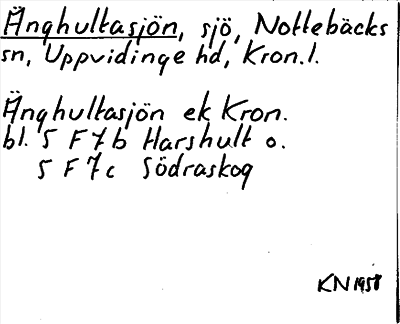 Änghultasjön, sjö, Nottebäcks
sn, Uppvidinge hd, Kron.l.
Änghultasjön ek Kron.
bl. 5 F 7 b Harshult o.
5 F 7 c Södraskog
KN 1958